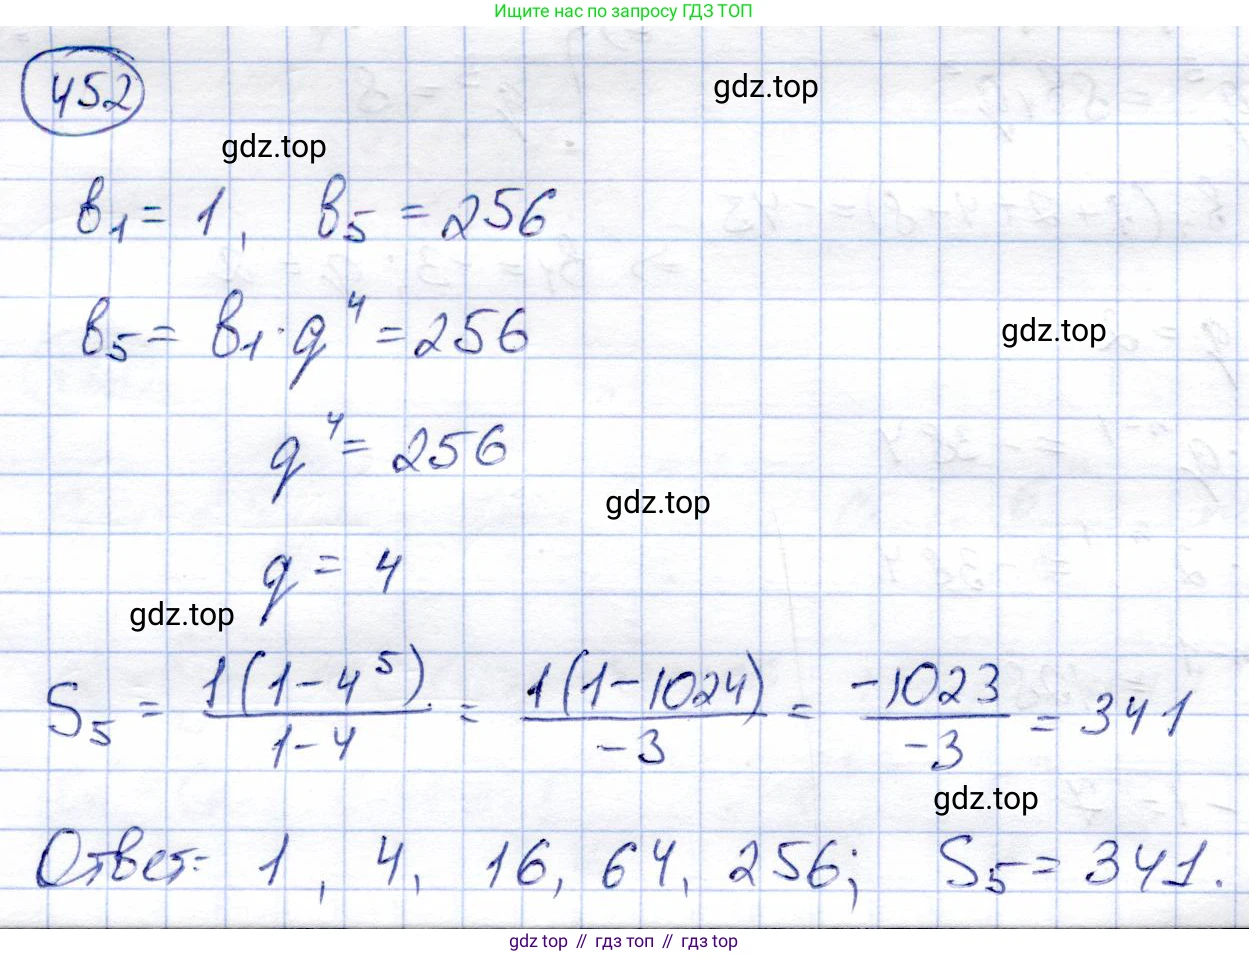 Ищите нас по запросу ГДЗ ТОП
452
gdz.top
gdz.top
в₁ = 1, в₅ = 256
в₅ = в₁ · q⁴ = 256
gdz.top
q⁴ = 256
gdz.top
q = 4
gdz.top
S₅ = 1(1-4⁵)/1-4 = 1(1-1024)/-3 = -1023/-3 = 341
gdz.top
Ответ: 1, 4, 16, 64, 256; S₅ = 341.
gdz top // гдз топ // гдз top